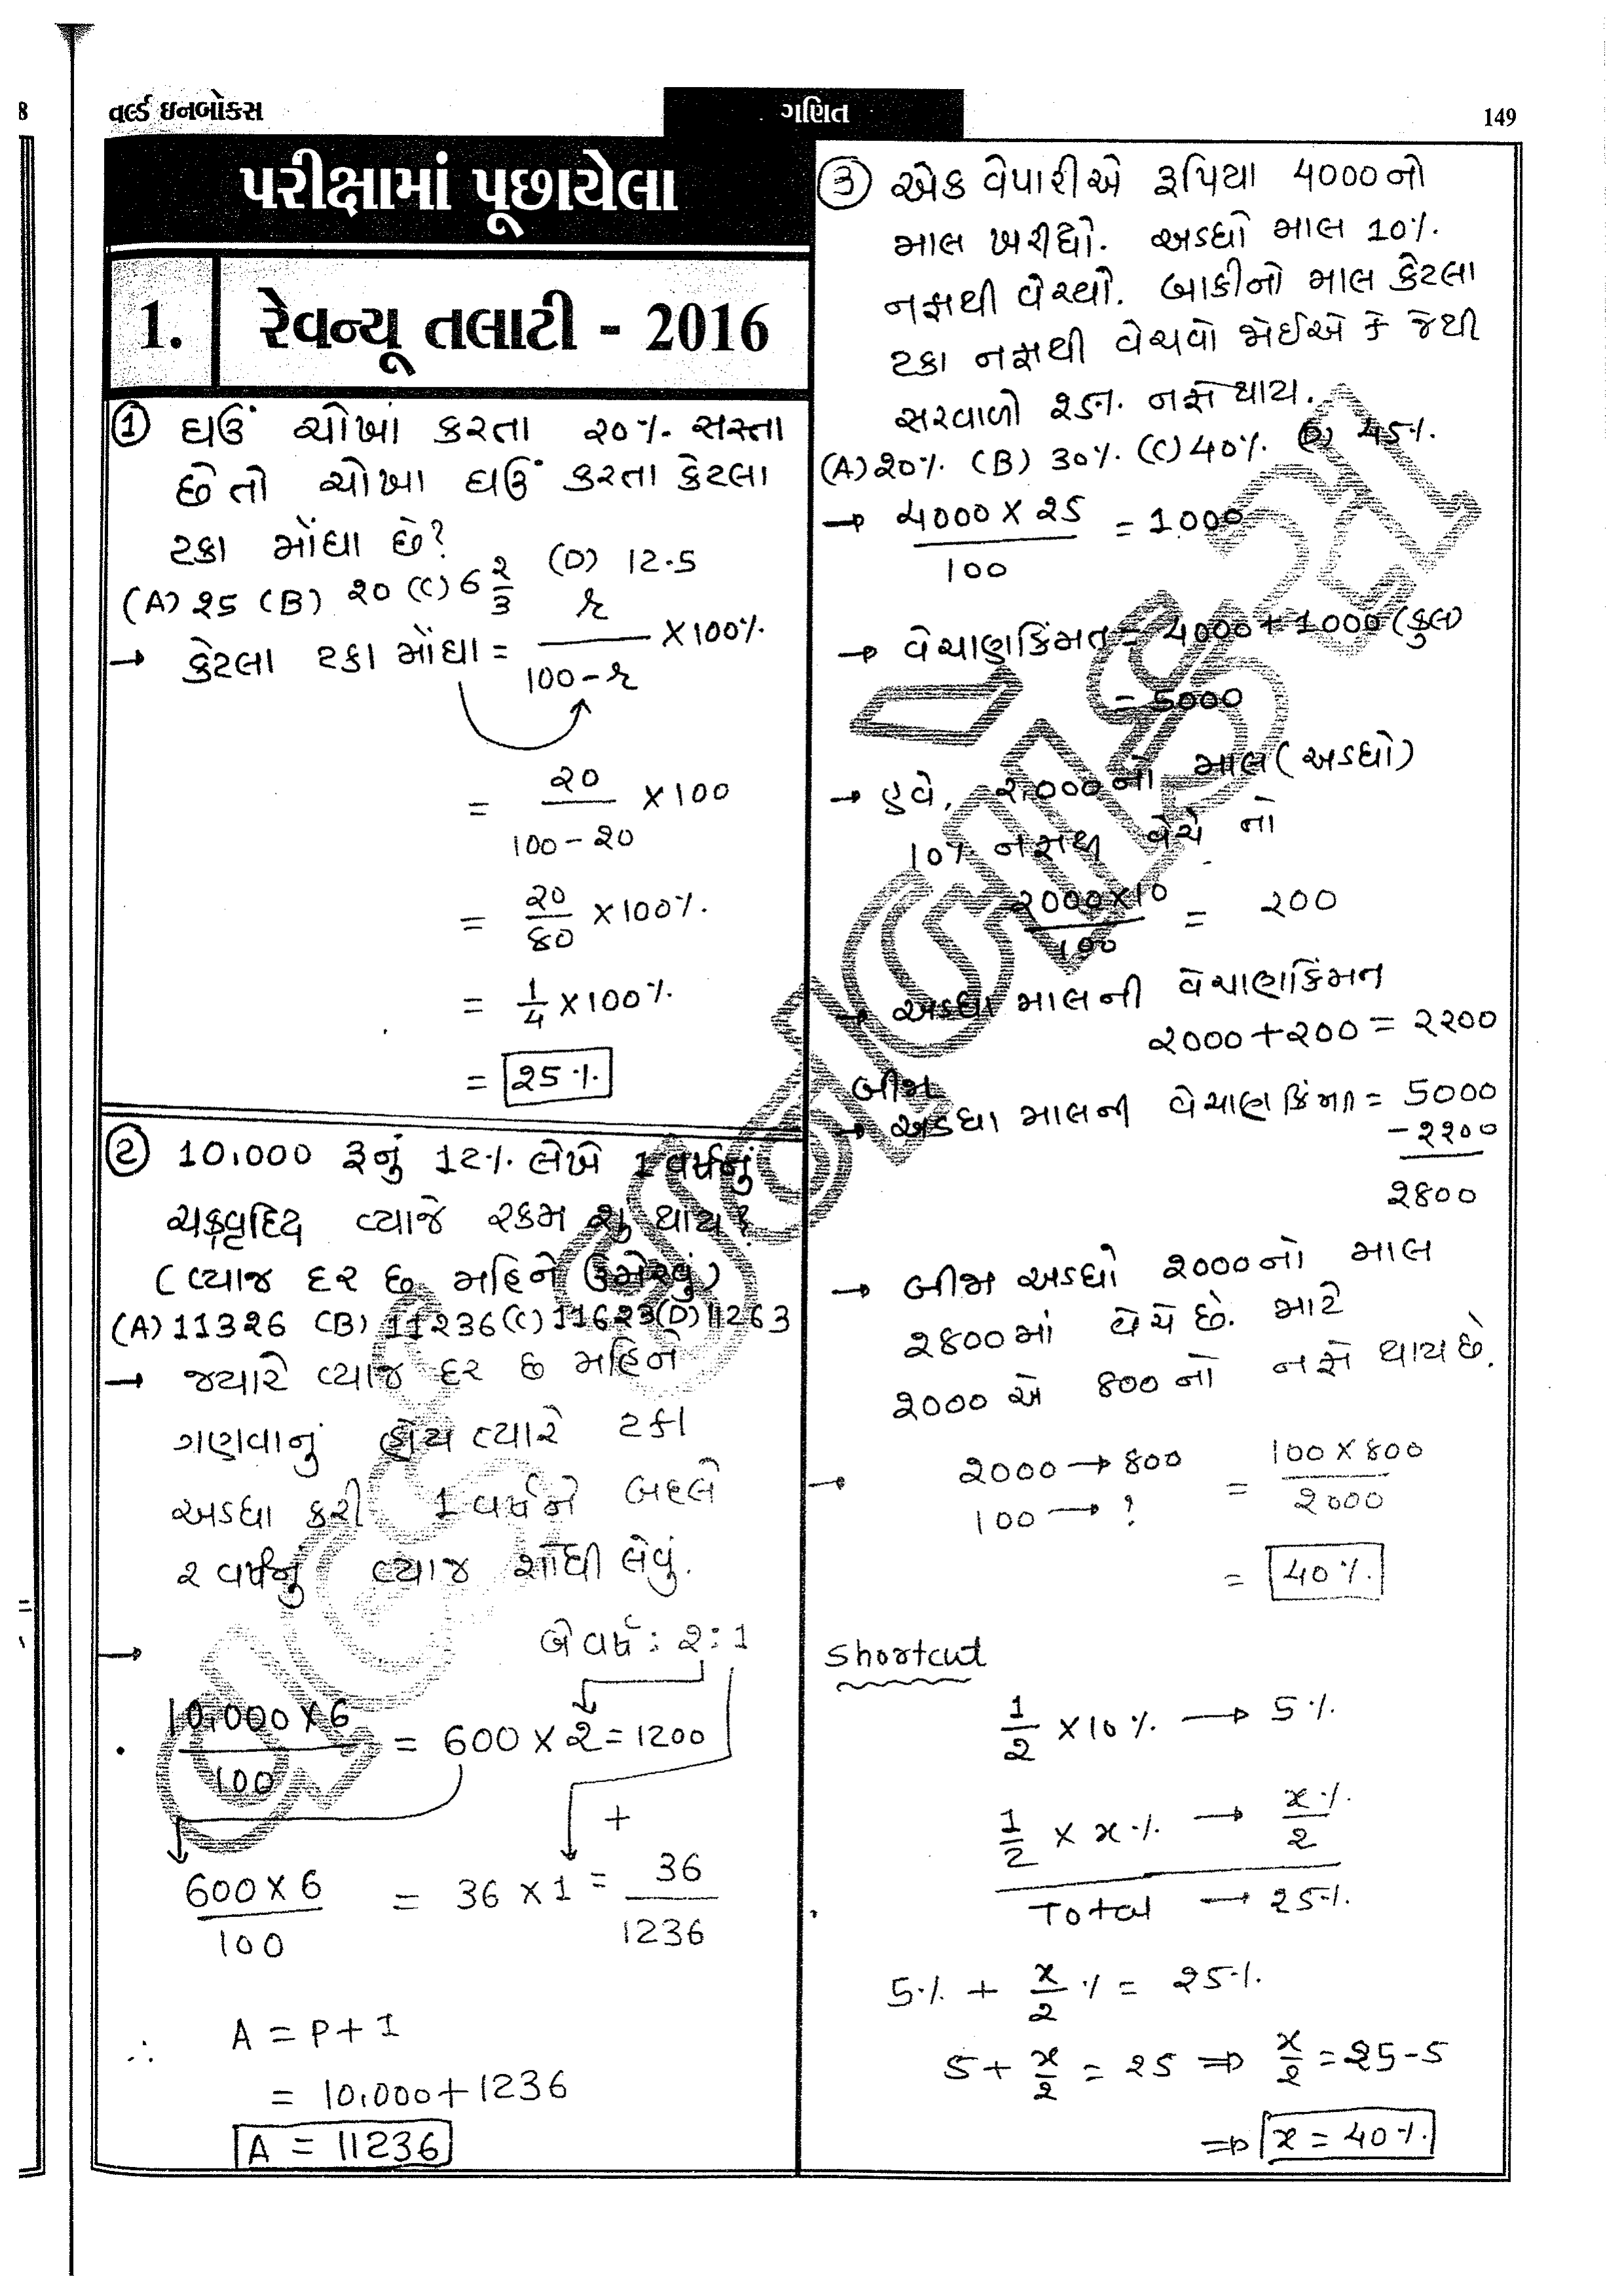 વર્લ્ડ ઇનબોક્સ
ગણિત
149
પરીક્ષામાં પૂછાયેલા
1. રેવન્યૂ તલાટી - 2016
① ઘઉં ચોખાં કરતા ૨૦% સસ્તા
છે તો ચોખા ઘઉં કરતા કેટલા
ટકા મોંઘા છે?
(A) ૨5 (B) ૨0 (C) 6 ૨/3 (D) 12.5
→ કેટલા ટકા મોંઘા = r / 100 - r × 100%
= ૨0 / 100 - ૨0 × 100
= ૨0 / 80 × 100%
= 1/4 × 100%
= ૨5%
② 10,000 રૂનું 12% લેખે 1 વર્ષનું
ચક્રવૃદ્ધિ વ્યાજે રકમ શું થાય?
(વ્યાજ દર છ મહિને ઉમેરવું)
(A) 113૨6 (B) 11૨36 (C) 116૨3 (D) 11૨63
→ જયારે વ્યાજ દર છ મહિને
ગણવાનું હોય ત્યારે ટકા
અડધા કરી 1 વર્ષને બદલે
૨ વર્ષનું વ્યાજ શોધી લેવું.
→ બે વર્ષ : ૨ : 1
10,000 × 6 / 100 = 600 × 2 = 1200
+
600 × 6 / 100 = 36 × 1 = 36
1236
∴ A = P + I
= 10,000 + 1236
A = 11236
③ એક વેપારીએ રૂપિયા 4000 નો
માલ ખરીદ્યો. અડધો માલ 10%
નફાથી વેચ્યો. બાકીનો માલ કેટલા
ટકા નફાથી વેચવો જોઈએ કે જેથી
સરવાળો ૨5% નફો થાય.
(A) ૨0% (B) 30% (C) 40% (D) 45%
→ 4000 × ૨5 / 100 = 1000
→ વેચાણકિંમત = 4000 + 1000 (કુલ)
= 5000
→ હવે, ૨,000 નો માલ (અડધો)
10% નફાથી વેચે તો
૨000 × 10 / 100 = ૨00
→ અડધા માલની વેચાણકિંમત
૨000 + ૨00 = ૨૨00
બીજા
→ અડધા માલની વેચાણકિંમત = 5000
- ૨૨00
૨800
→ બીજા અડધો ૨000 નો માલ
૨800 માં વેચે છે. માટે
૨000 એ 800 નો નફો થાય છે.
→ ૨000 → 800 = 100 × 800 / ૨000
100 → ?
= 40%
Shortcut
1/૨ × 10% → 5%
1/૨ × x% → x%/૨
Total → ૨5%
5% + x/૨ % = ૨5%
5 + x/૨ = ૨5 ⇒ x/૨ = ૨5 - 5
⇒ x = 40%